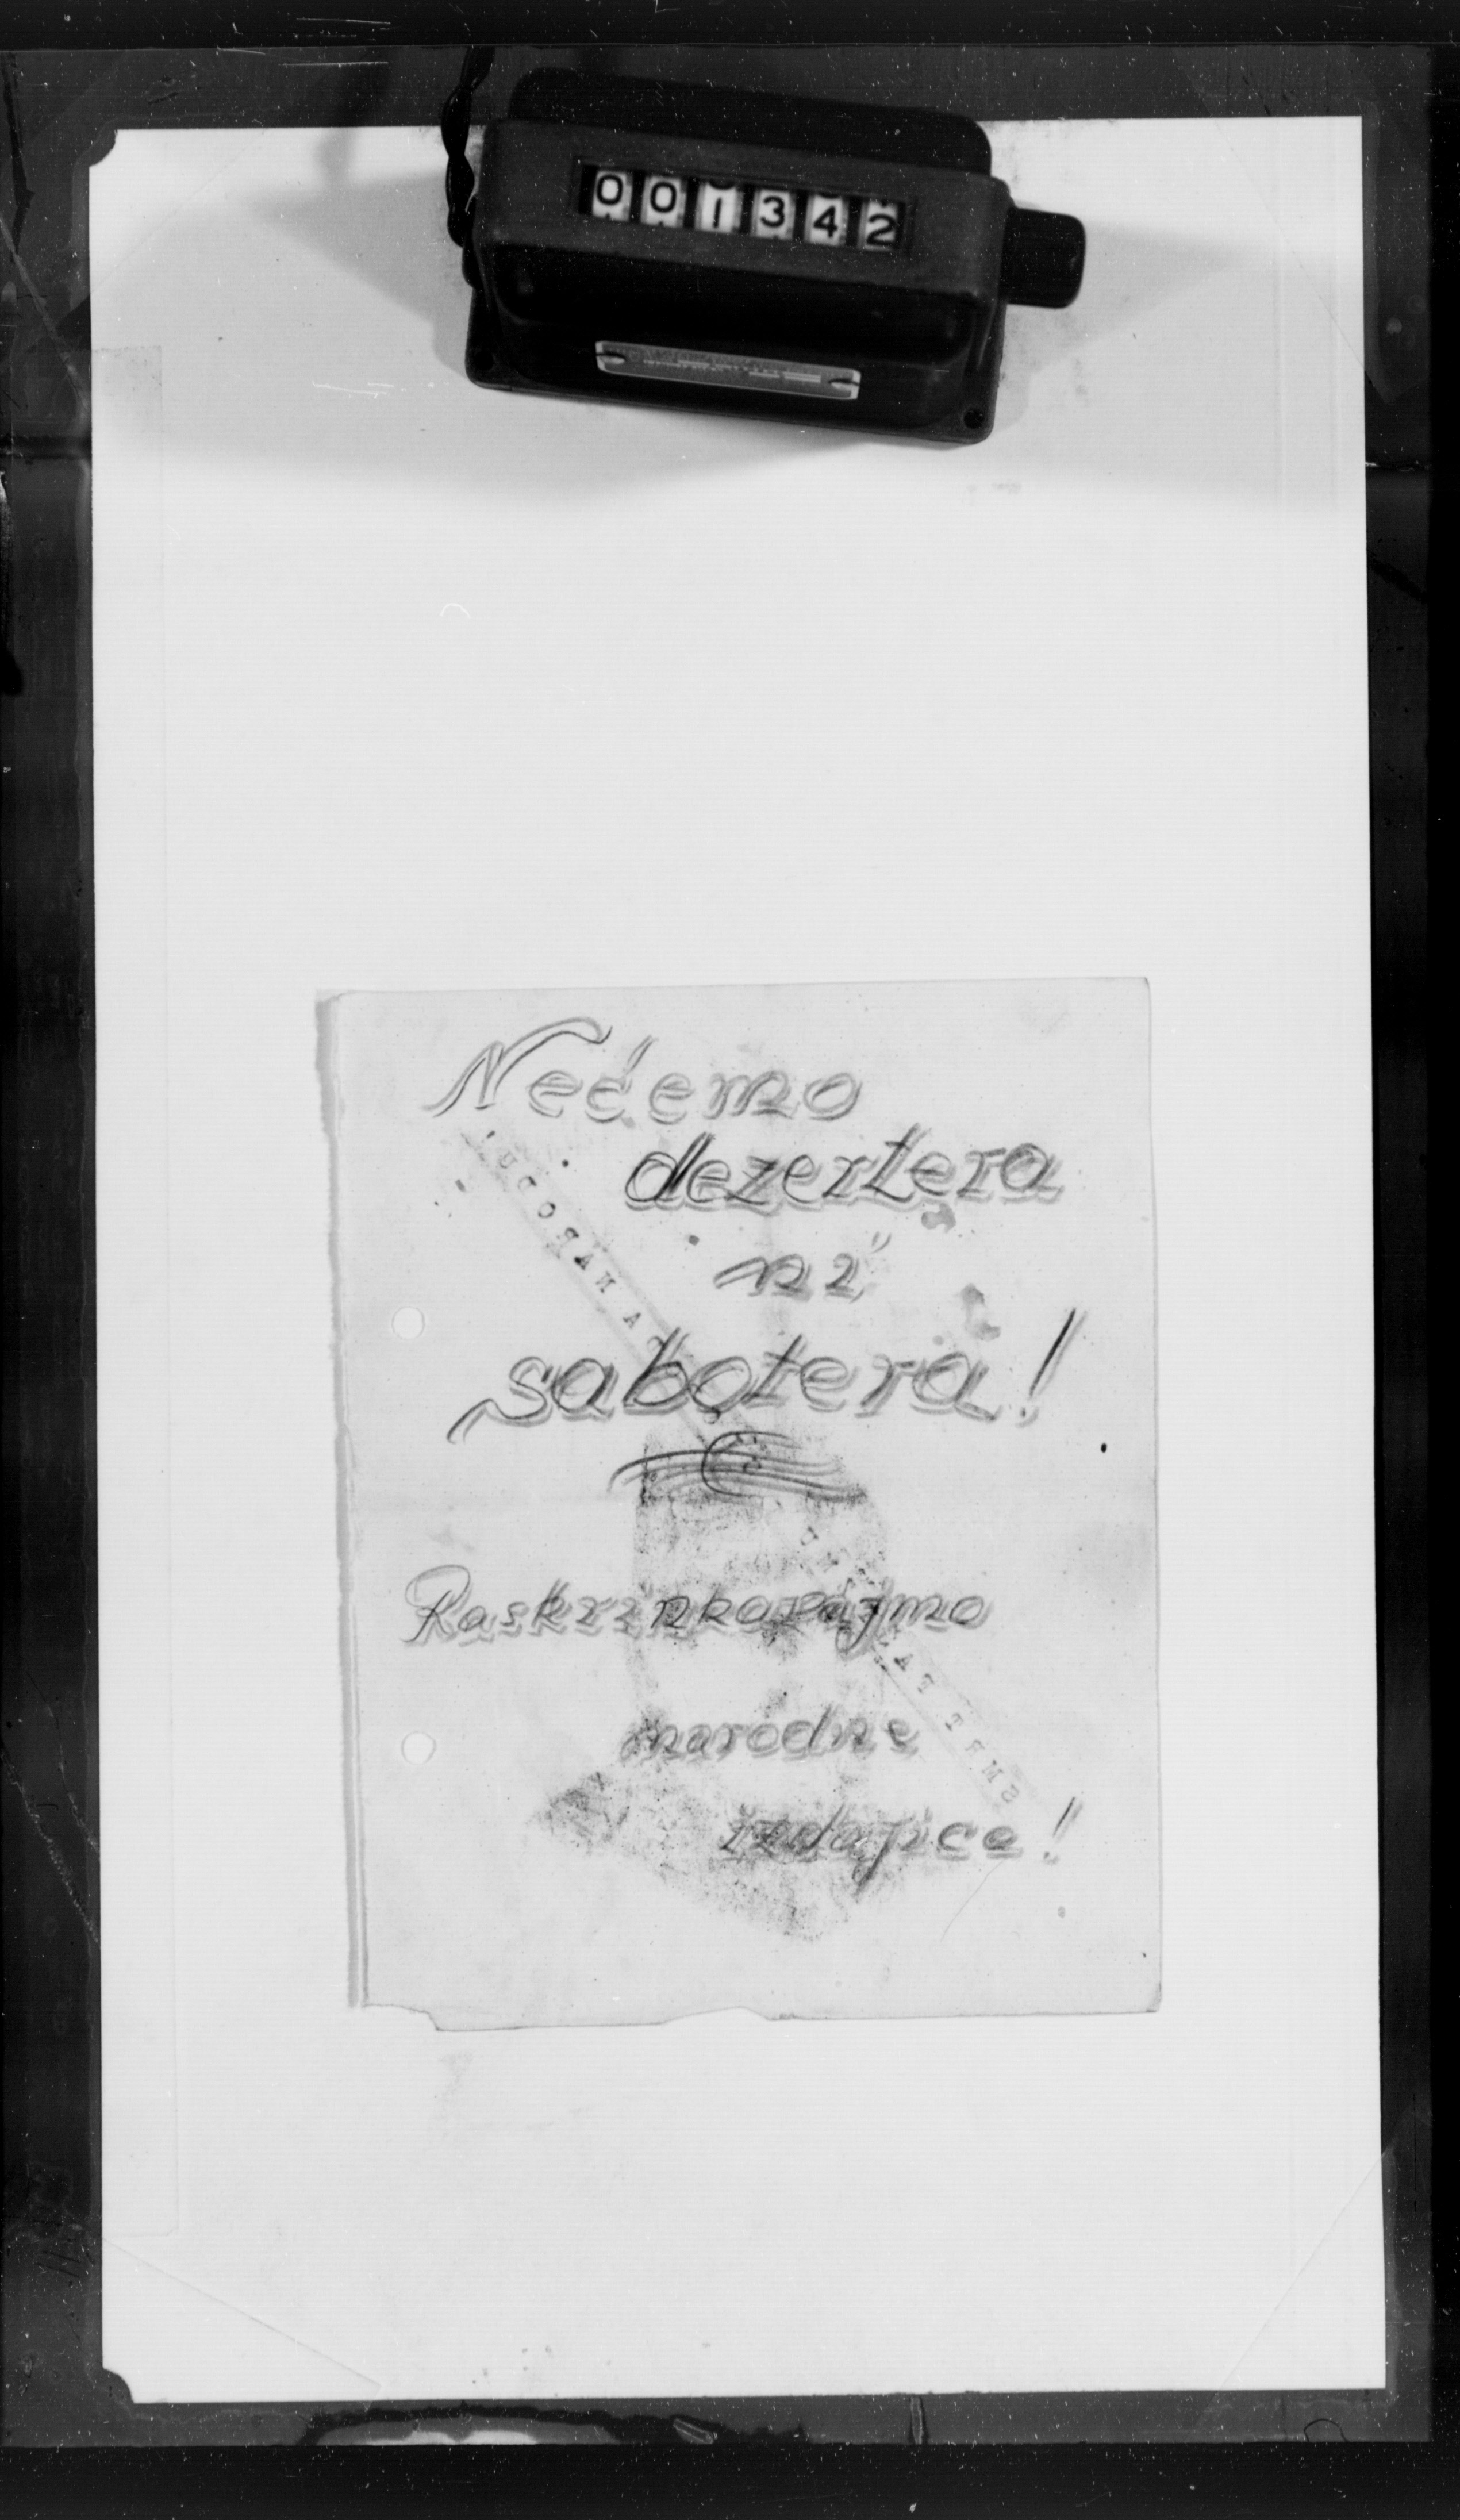 001342
Nećemo
dezertera
ni
sabotera!
Raskrinkavajmo
narodne
izdajice!